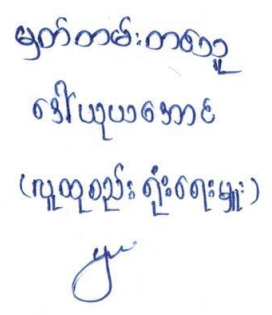 မှတ်တမ်းတာဝသူ
ဒေါ်ယုယအောင်
(လူထုစည်းရုံးရေးမှူး)